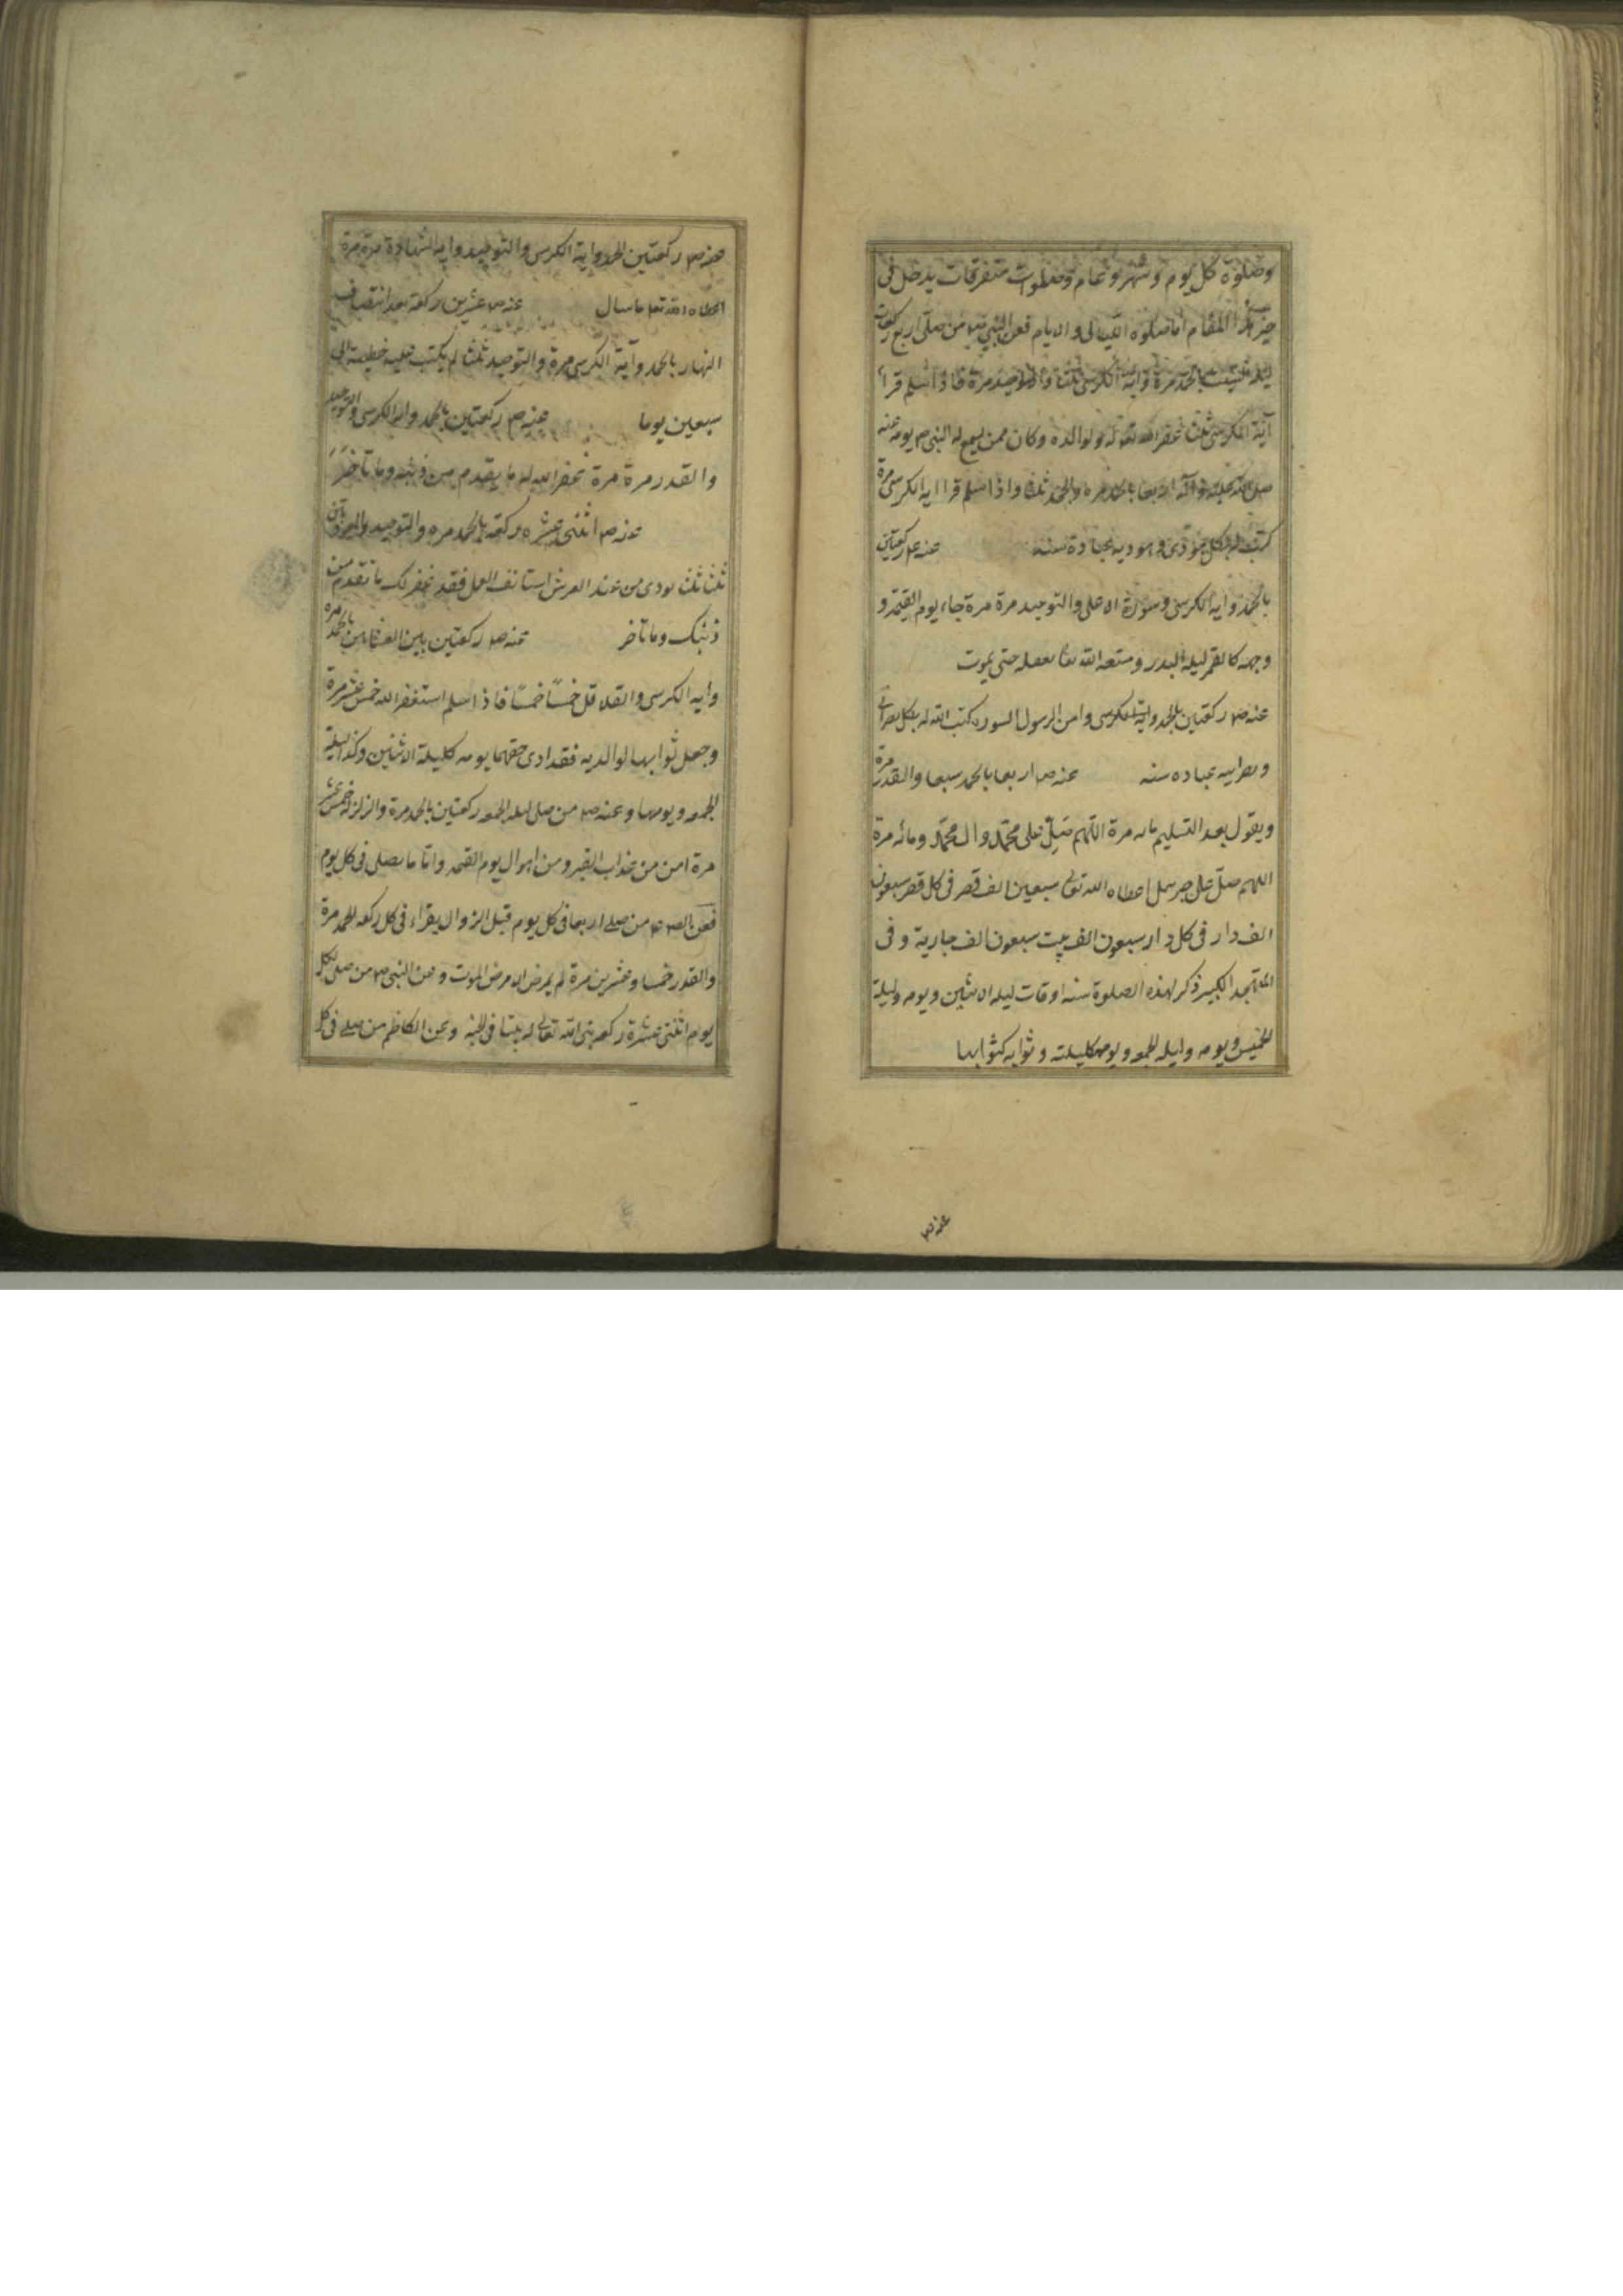 وصلوة كل يوم وشهر وعام وصلوات متفرقات يدخل فى
حيز هذا المقام اما صلوة الليالى والايام فعن النبى من صلى اربع ركعات
ليلة السبت بالحمد مرة واية الكرسى ثلثا والتوحيد مرة فاذا سلم قرأ
آية الكرسى ثلثا غفر الله تعالى له ولوالديه وكان ممن يشفع له النبى ص يومه عنه
صلى الله عليه وآله اربعا بالحمد مره والجحد ثلثا واذا سلم قرا اية الكرسى مرة
كتب له بكل يهودى ويهودية عبادة سنه عنه ص ركعتين
بالحمد واية الكرسى وسورة الاعلى والتوحيد مرة مرة جاء يوم القيمة و
وجهه كالقمر ليلة البدر ومتعه الله تعا بعقله حتى يموت
عنه ص ركعتين بالحمد واية الكرسى وامن الرسول السوره كتب الله له بكل نصرانى
ونصرانيه عباده سنه عنه ص اربعا بالحمد سبعا والقدر مرة
ويقول بعد التسليم مائه مرة اللهم صل على محمد وال محمد ومائه مرة
اللهم صل على جبرئيل اعطاه الله تعالى سبعين الف قصر فى كل قصر سبعون
الف دار فى كل دار سبعون الف بيت سبعون الف جارية وفى
المتهجد الكبير ذكر لهذه الصلوة ستة اوقات ليلة الاثنين ويومه وليلة
الخميس ويومه وليلة الجمعه ويومها كليلته وثوابه كثوابها
عنه ص
عنه ص ركعتين الحمد واية الكرسى والتوحيد واية الشهادة مرة مرة
اعطاه الله تعا ما سال عنه ص عشرين ركعة بعد انتصاف
النهار بالحمد وآية الكرسى مرة والتوحيد ثلثا لم يكتب عليه خطيئة الى
سبعين يوما عنه ص ركعتين بالحمد واية الكرسى والتوحيد
والقدر مرة مرة غفر الله له ما يقدم من ذنبه وما تأخر
عنه ص اثنى عشره ركعة بالحمد مره والتوحيد والمعوذتين
ثلثا ثلثا نودى من عند العرش استانف العمل فقد غفر لك ما تقدم من
ذنبك وما تاخر عنه ص ركعتين بين العشاءين بالحمد مره
واية الكرسى والقلاقل خمسًا خمسًا فاذا سلم استغفر الله خمس عشر مرة
وجعل ثوابها لوالديه فقد ادى حقهما يومه كليلة الاثنين وكذا ليلة
الجمعه ويومها وعنه ص من صلى ليلة الجمعه ركعتين بالحمد مرة والزلزله خمس عشر
مرة امن من عذاب القبر ومن اهوال يوم القيمه واما ما يصلى فى كل يوم
فعن الص ع من صلى اربعا فى كل يوم قبل الزوال يقراء فى كل ركعه الحمد مرة
والقدر خمسا وعشرين مرة لم يمرض الا مرض الموت وعن النبى ص من صلى كل
يوم اثنتى عشرة ركعه بنى الله تعالى له بيتا فى الجنه وعن الكاظم من صلى فى كل